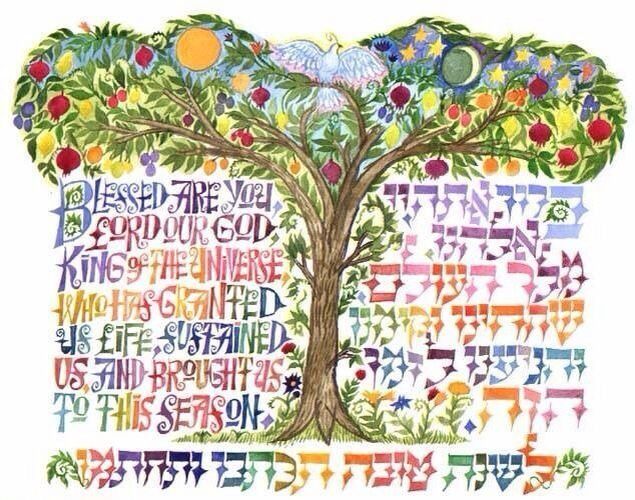 BLESSED ARE YOU,
LORD OUR GOD,
KING OF THE UNIVERSE,
WHO HAS GRANTED
US LIFE, SUSTAINED
US, AND BROUGHT US
TO THIS SEASON.
ברוך אתה יי
אלהינו
מלך העולם
שהחינו וקימנו
והגיענו לזמן
הזה
לשנה טובה תכתבו ותחתמו